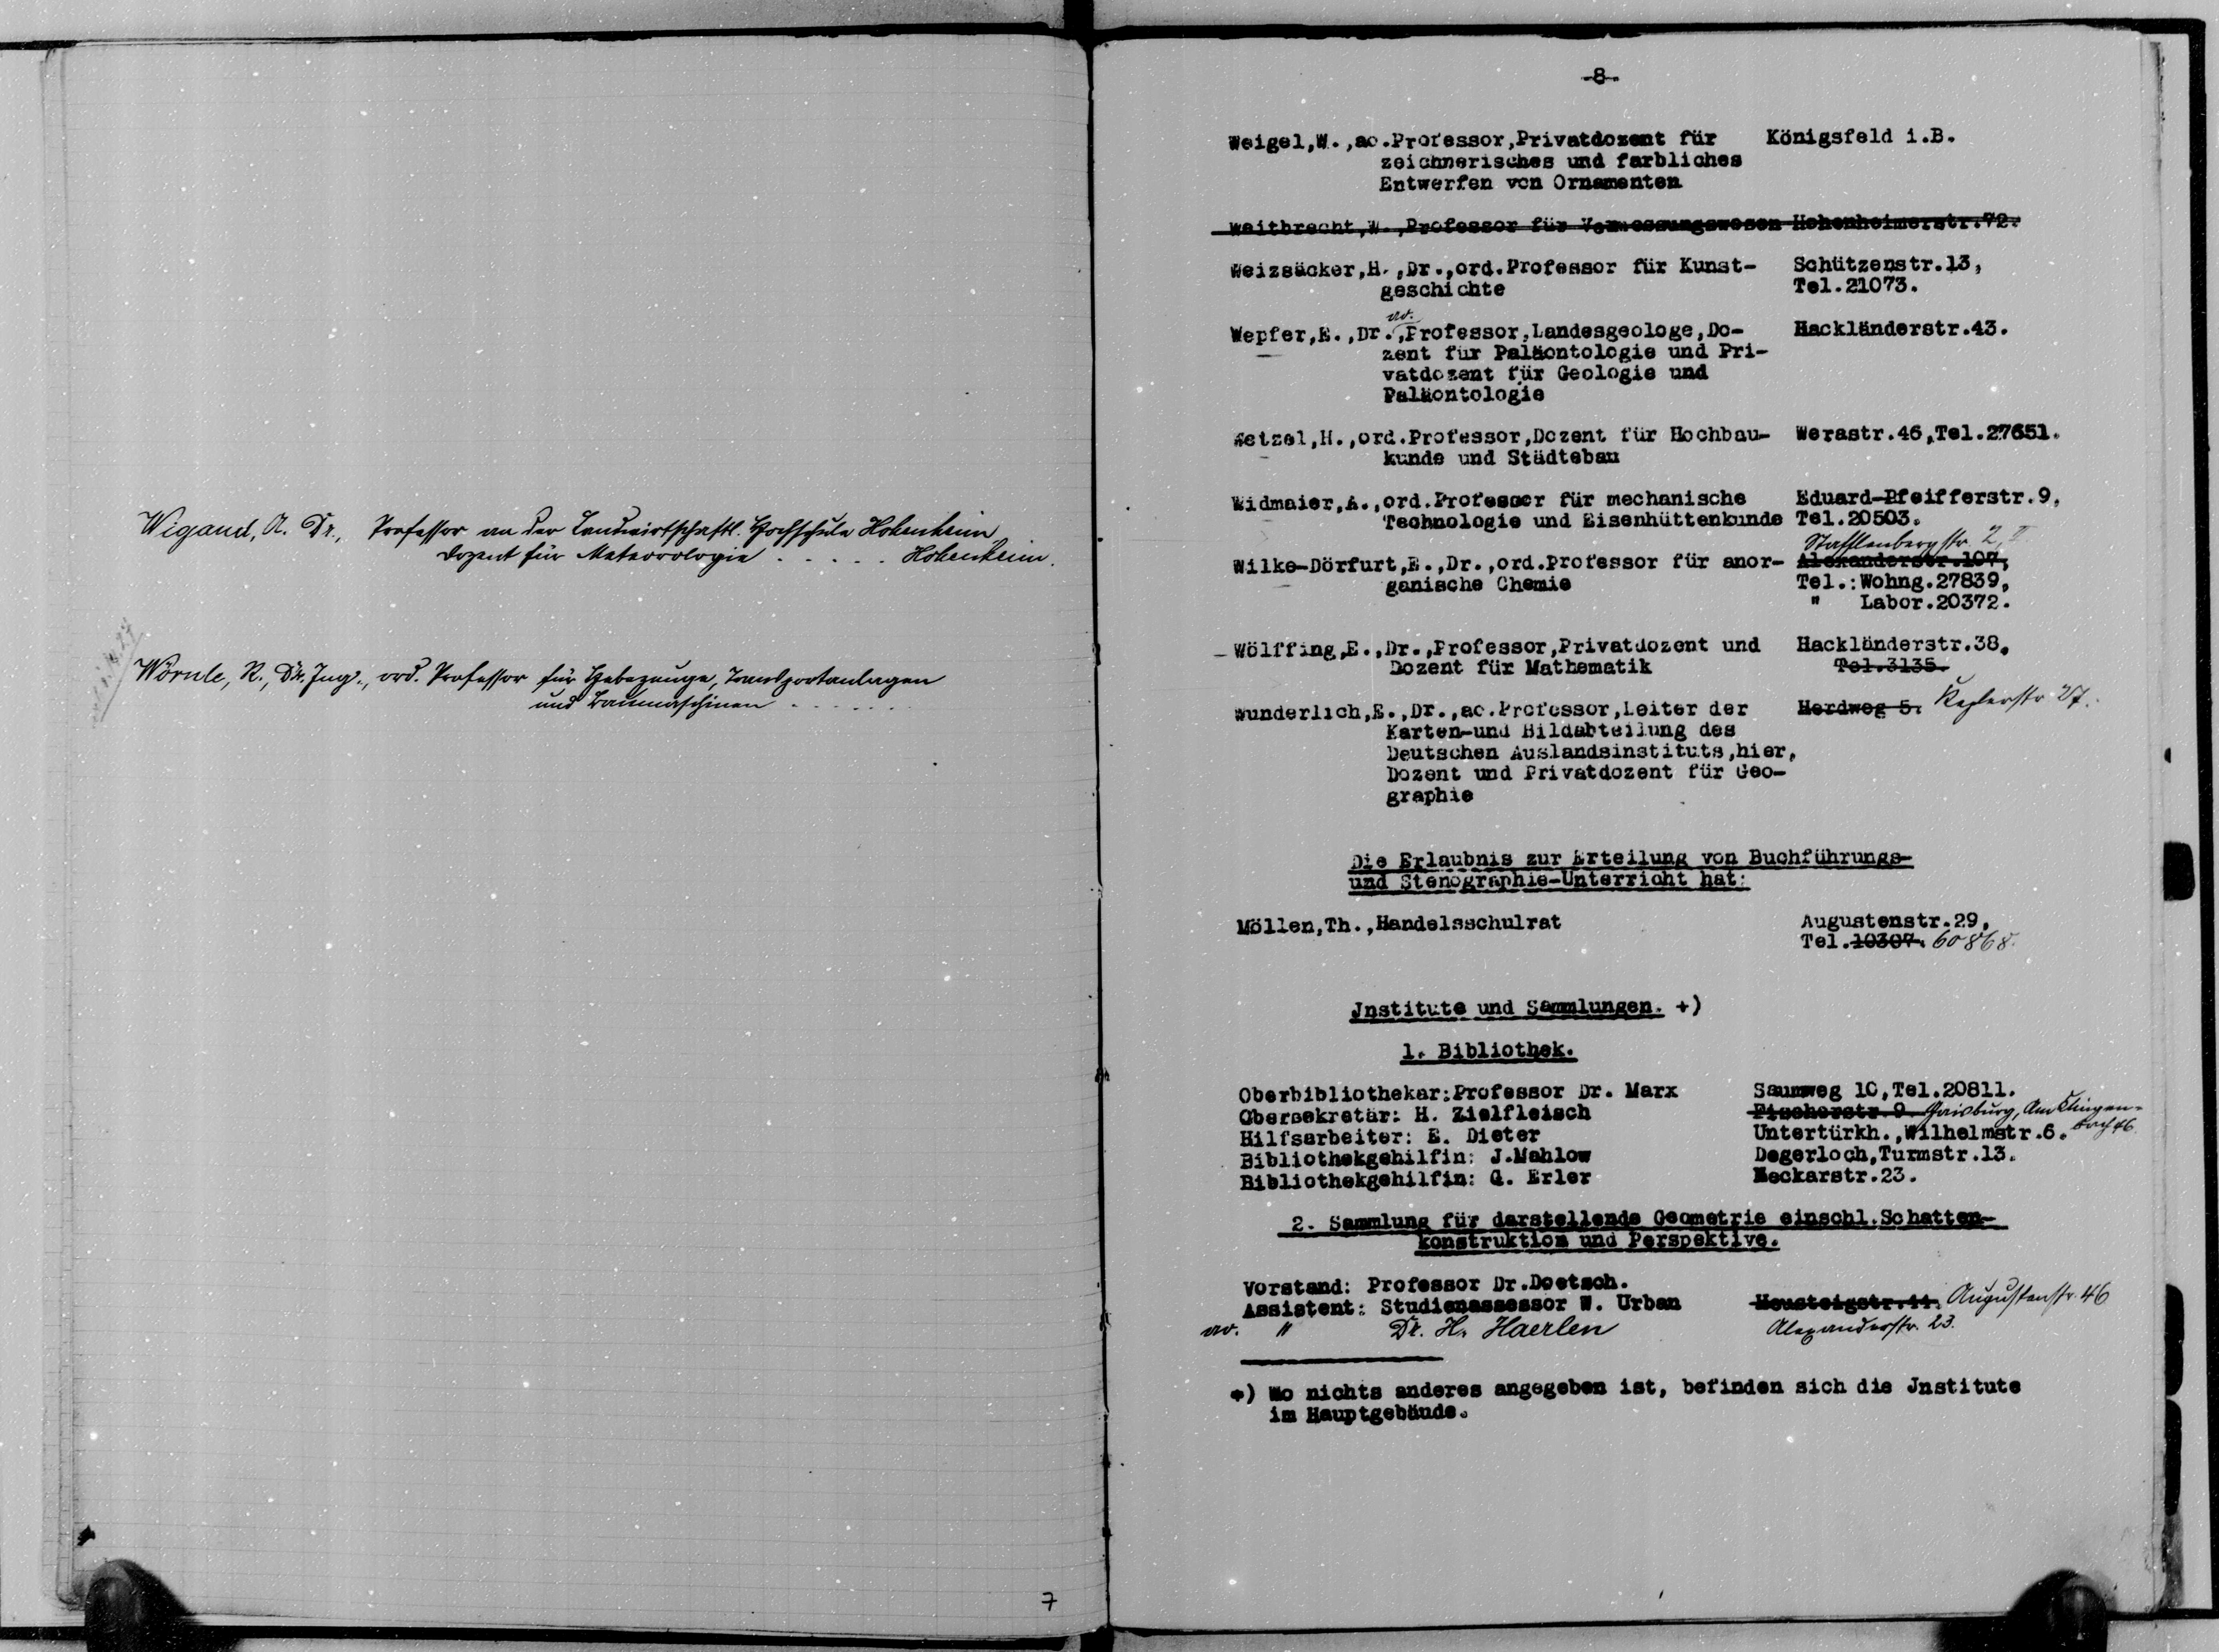 Wigand, A. Dr., Professor an der Landwirtschaftl. Hochschule Hohenheim,
Dozent für Meteorologie . . . . . Hohenheim.
Wörnle, R., Dr. Ing., ord. Professor für Hebezeuge, Transportanlagen
und Baumaschinen . . . . . .
7
-8-
Weigel,W.,ao.Professor,Privatdozent für Königsfeld i.B.
zeichnerisches und farbliches
Entwerfen von Ornamenten
Weitbrecht,W.,Professor für Vermessungswesen Hohenheimerstr.72.
Weizsäcker,H.,Dr.,ord.Professor für Kunst- Schützenstr.13,
geschichte Tel.21073.
ao.
Wepfer,E.,Dr.,Professor,Landesgeologe,Do- Hackländerstr.43.
zent für Paläontologie und Pri-
vatdozent für Geologie und
Paläontologie
Wetzel,H.,ord.Professor,Dozent für Hochbau- Werastr.46,Tel.27651.
kunde und Städtebau
Widmaier,A.,ord.Professor für mechanische Eduard-Pfeifferstr.9,
Technologie und Eisenhüttenkunde Tel.20503.
Stafflenbergstr. 2, II
Wilke-Dörfurt,E.,Dr.,ord.Professor für anor- Alexanderstr.107,
ganische Chemie Tel.:Wohng.27839,
" Labor.20372.
Wölffing,E.,Dr.,Professor,Privatdozent und Hackländerstr.38,
Dozent für Mathematik Tel.3135.
Wunderlich,E.,Dr.,ao.Professor,Leiter der Herdweg 5. Keplerstr 27.
Karten-und Bildabteilung des
Deutschen Auslandsinstituts,hier,
Dozent und Privatdozent für Geo-
graphie
Die Erlaubnis zur Erteilung von Buchführungs-
und Stenographie-Unterricht hat:
Möllen,Th.,Handelsschulrat Augustenstr.29,
Tel.10307. 60868.
Jnstitute und Sammlungen. +)
1. Bibliothek.
Oberbibliothekar:Professor Dr. Marx Saumweg 10,Tel.20811.
Obersekretär: H. Zielfleisch Fischerstr.9. Gaisburg, Am Klingen-
Hilfsarbeiter: E. Dieter Untertürkh.,Wilhelmstr.6. bach 46.
Bibliothekgehilfin: J.Mahlow Degerloch,Turmstr.13.
Bibliothekgehilfin: G. Erler Neckarstr.23.
2. Sammlung für darstellende Geometrie einschl.Schatten-
konstruktion und Perspektive.
Vorstand: Professor Dr.Doetsch.
Assistent: Studienassessor W. Urban Heusteigstr.44. Augustenstr. 46
ao. " Dr. H. Haerlen Alexanderstr. 23.
+) Wo nichts anderes angegeben ist, befinden sich die Jnstitute
im Hauptgebäude.